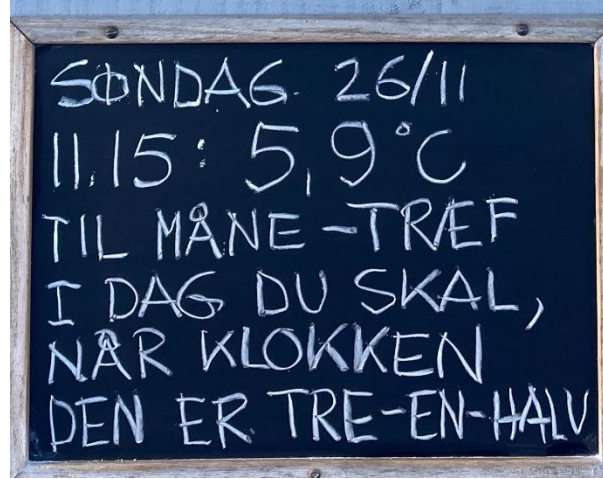 SØNDAG 26/11
11.15: 5,9°C
TIL MÅNE-TRÆF
I DAG DU SKAL,
NÅR KLOKKEN
DEN ER TRE-EN-HALV